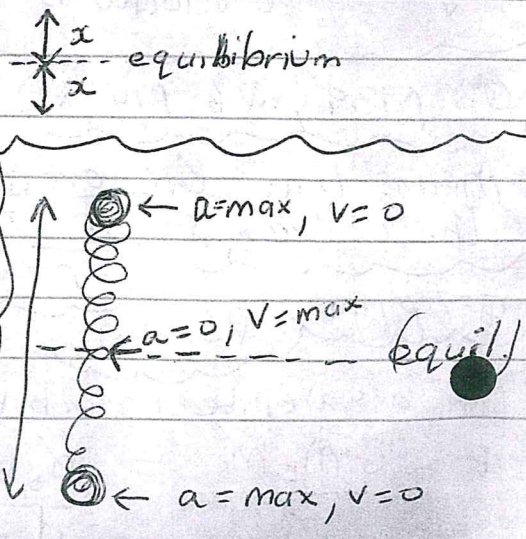 x
equilibrium
x
a=max, v=0
a=0, v=max
(equil.)
a = max, v=0